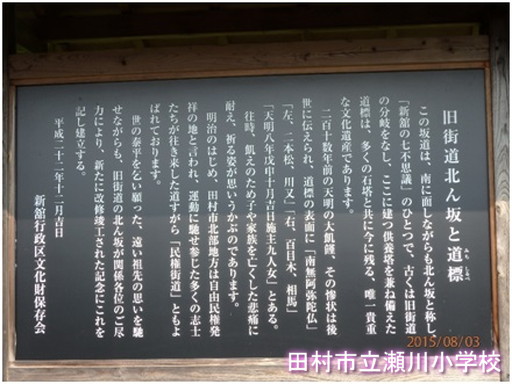 旧街道北ん坂と道標
みちしるべ
この坂道は、南に面しながらも北ん坂と称し、
「新舘の七不思議」のひとつで、古くは旧街道
の分岐をなし、ここに建つ供養塔を兼ね備えた
道標は、多くの石塔と共に今に残る、唯一貴重
な文化遺産であります。
二百十数年前の天明の大飢饉、その惨状は後
世に伝えられ、道標の表面に「南無阿弥陀仏」
「左、二本松、川又」「右、百目木、相馬」
「天明八年戊申十月吉日施主九人女」とある。
往時、飢えのため子や家族を亡くした悲痛に
耐え、祈る姿が思いうかぶのであります。
明治のはじめ、田村市北部地方は自由民権発
祥の地と言われ、運動に馳せ参じた多くの志士
たちが往き来した道すがら「民権街道」ともよ
ばれております。
世の泰平を乞い願った、遠い祖先の思いを馳
せながらも、旧街道の北ん坂が関係各位のご尽
力により、新たに改修竣工された記念にこれを
記し建立する。
平成二十二年十二月吉日
新舘行政区文化財保存会
2015/08/03
田村市立瀬川小学校